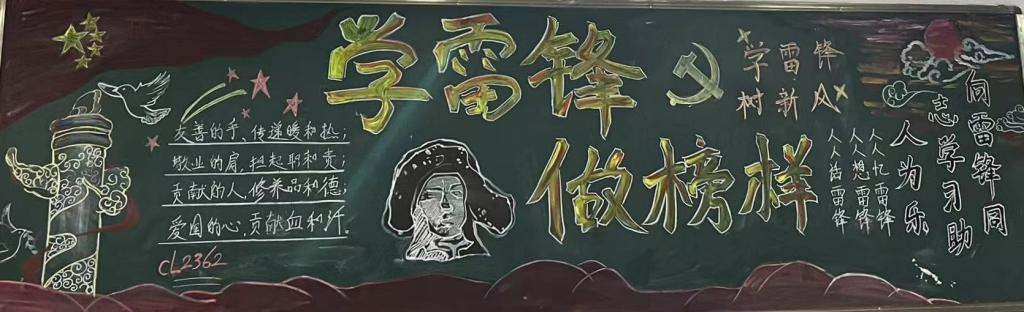 学雷锋
做榜样
学雷锋
树新风
友善的手、传递暖和热;
敬业的肩,担起职和责;
贡献的人,修养品和德;
爱国的心,贡献血和汗.
CL2362
人人忆雷锋
人人想雷锋
人人话雷锋
向雷锋同
志学习助
人为乐